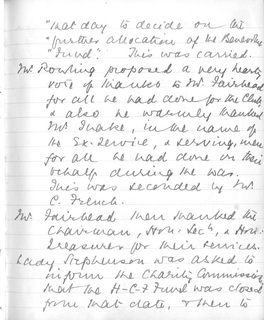 "that day to decide on the
"further allocation of the Benevolent
"Fund". This was carried.
Mr. Rowling proposed a very hearty
vote of thanks to Mr. Fairhead
for all he had done for the Club
& also he warmly thanked
Mr. Thake, in the name of
the Ex-Service, & serving, men
for all he had done on their
behalf during the war.
This was seconded by Mr.
C. French.
Mr. Fairhead then thanked the
Chairman, Hon. Sec., & Hon.
Treasurer for their services.
Lady Stephenson was asked to
inform the Charity Commission
that the H-C-F Fund was closed
from that date, & then to